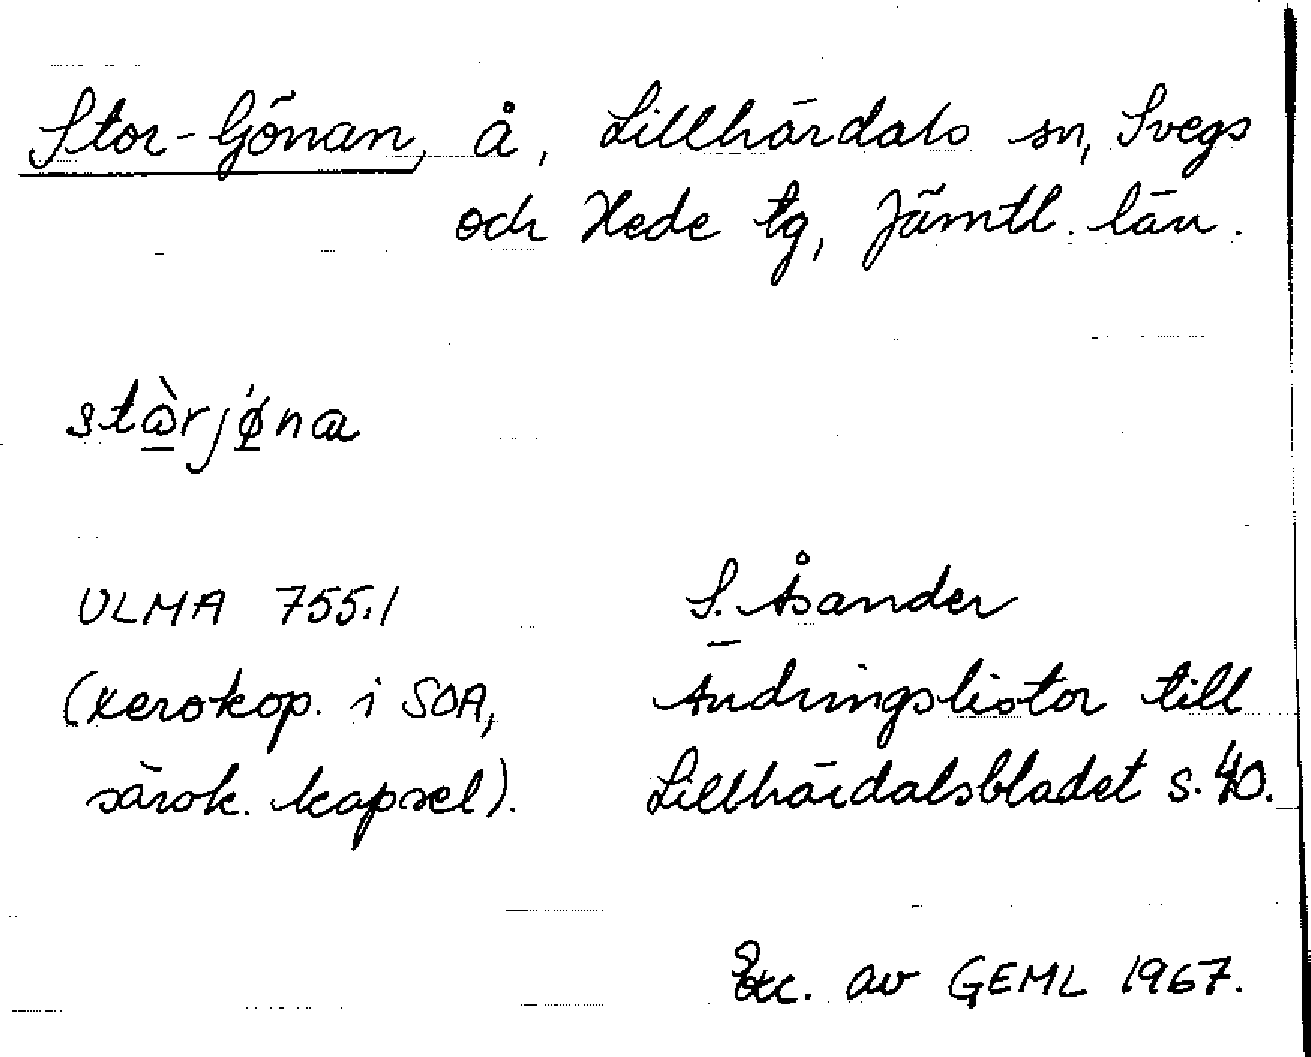 Stor-Gönan, å, Lillhärdals sn, Svegs
och Hede tg, Jämtl. län.
stɷ̀rjǿna
ULMA 755:1
(xerokop. i SOA,
särsk. kapsel).
S. Åsander
Ändringslistor till
Lillhärdalsbladet s. 40.
Exc. av GEML 1967.